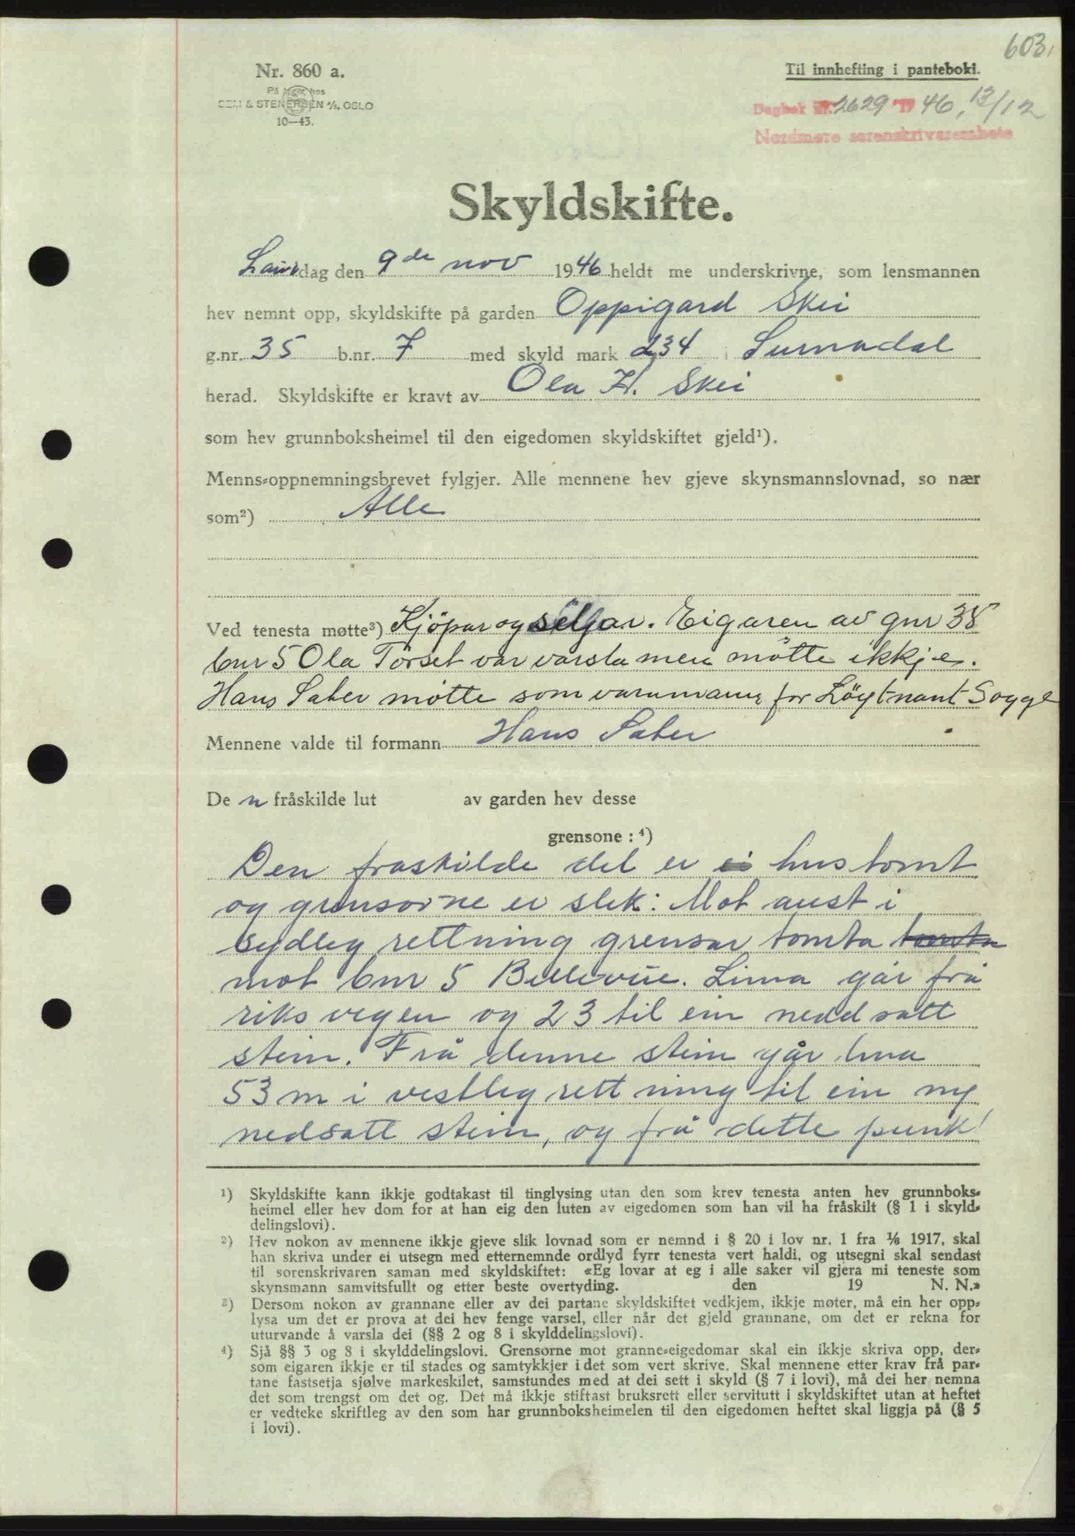 603.
Nr. 860 a.
På lager hos
SEM & STENERSEN A/S, OSLO
10—43.
Til innhefting i panteboki.
Dagbok nr. 2629 19 46, 13/12
Nordmøre sorenskrivarembete
Skyldskifte.
Laurdag den 9de nov 1946 heldt me underskrivne, som lensmannen
hev nemnt opp, skyldskifte på garden Oppigard Skei
g.nr. 35 b.nr. 7 med skyld mark 2,34 i Surnadal
herad. Skyldskifte er kravt av Ola H. Skei
som hev grunnboksheimel til den eigedomen skyldskiftet gjeld¹).
Menns-oppnemningsbrevet fylgjer. Alle mennene hev gjeve skynsmannslovnad, so nær
som²) Alle
Ved tenesta møtte³) Kjöpar og seljar. Eigaren av gnr 35
bnr 5 Ola Törset var varsla men mötte ikkje.
Hans Sæter mötte som varamann for Löytnant Sogge
Mennene valde til formann Hans Sæter
De n fråskilde lut av garden hev desse
grensone : ⁴)
Den fraskilde del er ei hustomt
og grensorne er slik: Mot aust i
sydleg rettning grensar tomta tomta
mot bnr 5 Bellevue. Linna går frå
riksvegen og 23 til ein nedd satt
stein. Frå denne stein går lina
53 m i vestleg rettning til ein ny
nedsatt stein, og frå dette punkt
¹) Skyldskifte kann ikkje godtakast til tinglysing utan den som krev tenesta anten hev grunnboks-
heimel eller hev dom for at han eig den luten av eigedomen som han vil ha fråskilt (§ 1 i skyld-
delingslovi).
²) Hev nokon av mennene ikkje gjeve slik lovnad som er nemnd i § 20 i lov nr. 1 fra 1/6 1917, skal
han skriva under ei utsegn med etternemnde ordlyd fyrr tenesta vert haldi, og utsegni skal sendast
til sorenskrivaren saman med skyldskiftet: «Eg lovar at eg i alle saker vil gjera mi teneste som
skynsmann samvitsfullt og etter beste overtyding. den 19 N. N.»
³) Dersom nokon av grannane eller av dei partane skyldskiftet vedkjem, ikkje møter, må ein her opp-
lysa um det er prova at dei hev fenge varsel, eller når det gjeld grannane, om det er rekna for
uturvande å varsla dei (§§ 2 og 8 i skylddelingslovi).
⁴) Sjå §§ 3 og 8 i skylddelingslovi. Grensorne mot granne-eigedomar skal ein ikkje skriva opp, der-
som eigaren ikkje er til stades og samtykkjer i det som vert skrive. Skal mennene etter krav frå par-
tane fastsetja sjølve markeskilet, samstundes med at dei sett i skyld (§ 7 i lovi), må dei her nemna
det som trengst om det og. Det må ikkje stiftast bruksrett eller servitutt i skyldskiftet utan at heftet
er vedteke skriftleg av den som har grunnboksheimelen til den eigedomen heftet skal liggja på (§ 5
i lovi).